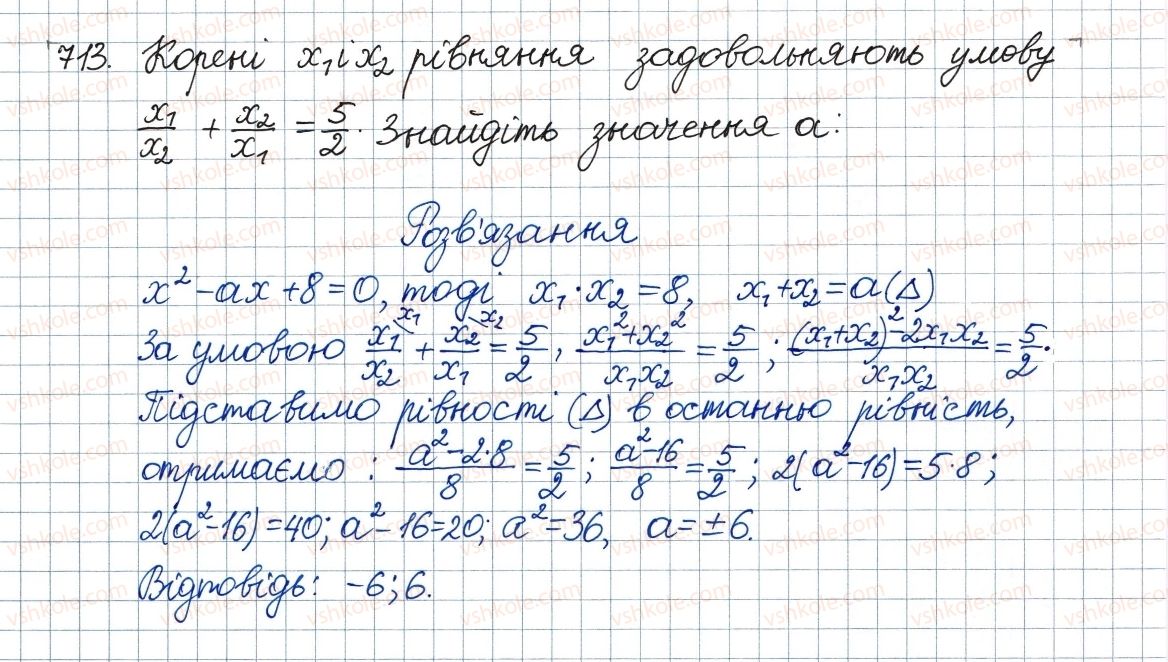 713. Корені x₁ і x₂ рівняння задовольняють умову
x₁/x₂ + x₂/x₁ = 5/2. Знайдіть значення a:
Розв'язання
x² - ax + 8 = 0, тоді x₁·x₂ = 8, x₁ + x₂ = a (Δ)
За умовою x₁/x₂ \x₁ + x₂/x₁ \x₂ = 5/2, (x₁² + x₂²)/(x₁x₂) = 5/2; ((x₁ + x₂)² - 2x₁x₂)/(x₁x₂) = 5/2.
Підставимо рівності (Δ) в останню рівність,
отримаємо: (a² - 2·8)/8 = 5/2; (a² - 16)/8 = 5/2; 2(a² - 16) = 5·8;
2(a² - 16) = 40; a² - 16 = 20; a² = 36, a = ±6.
Відповідь: -6; 6.
vshkole.com